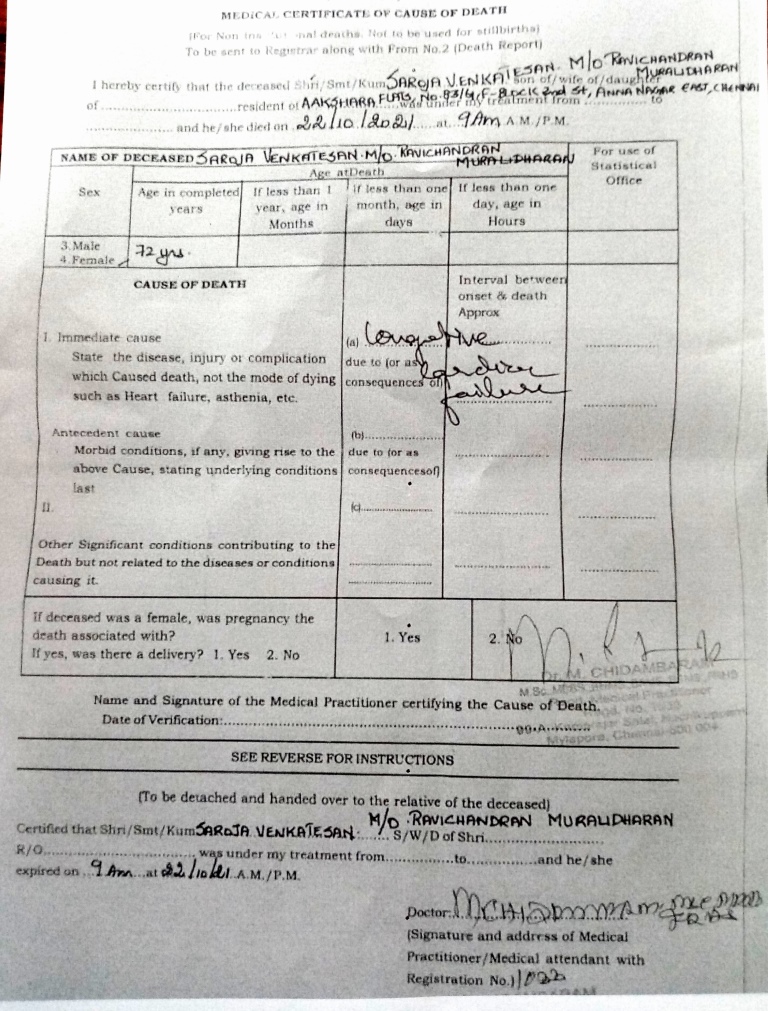 MEDICAL CERTIFICATE OF CAUSE OF DEATH
(For Non Ins nal deaths. Not to be used for stillbirths)
To be sent to Registrar along with From No.2 (Death Report)
I hereby certify that the deceased Shri/Smt/Kum SAROJA VENKATESAN M/O RAVICHANDRAN MURALIDHARAN son of/wife of/daughter
of ............ resident of AAKSHARA FLATS, No. 83/4, F-BLOCK 2nd St, ANNA NAGAR EAST, CHENNAI was under my treatment from ............ to
............ and he/she died on 22/10/2021 at 9Am A.M./P.M.
NAME OF DECEASED SAROJA VENKATESAN M/O RAVICHANDRAN MURALIDHARAN
For use of Statistical Office
Age atDeath
Sex
Age in completed years
If less than 1 year, age in Months
if less than one month, age in days
If less than one day, age in Hours
3. Male
4. Female
72 yrs.
CAUSE OF DEATH
Interval between onset & death Approx
I. Immediate cause
State the disease, injury or complication
which Caused death, not the mode of dying
such as Heart failure, asthenia, etc.
(a) Congestive
due to (or as cardiac
consequences of) failure
Antecedent cause
Morbid conditions, if any, giving rise to the
above Cause, stating underlying conditions
last
(b)............
due to (or as
consequencesof)
II.
(c)............
Other Significant conditions contributing to the
Death but not related to the diseases or conditions
causing it.
If deceased was a female, was pregnancy the
death associated with?
If yes, was there a delivery? 1. Yes 2. No
1. Yes
2. No
Dr. M. CHIDAMBARAM
Mylapore, Chennai-600 004
Name and Signature of the Medical Practitioner certifying the Cause of Death.
Date of Verification:............
SEE REVERSE FOR INSTRUCTIONS
(To be detached and handed over to the relative of the deceased)
Certified that Shri/Smt/Kum SAROJA VENKATESAN M/O RAVICHANDRAN MURALIDHARAN S/W/D of Shri............
R/O............ was under my treatment from............to............and he/she
expired on 9 Am at 22/10/21 A.M./P.M.
Doctor M CHIDAMBARAM
(Signature and address of Medical
Practitioner/Medical attendant with
Registration No.)